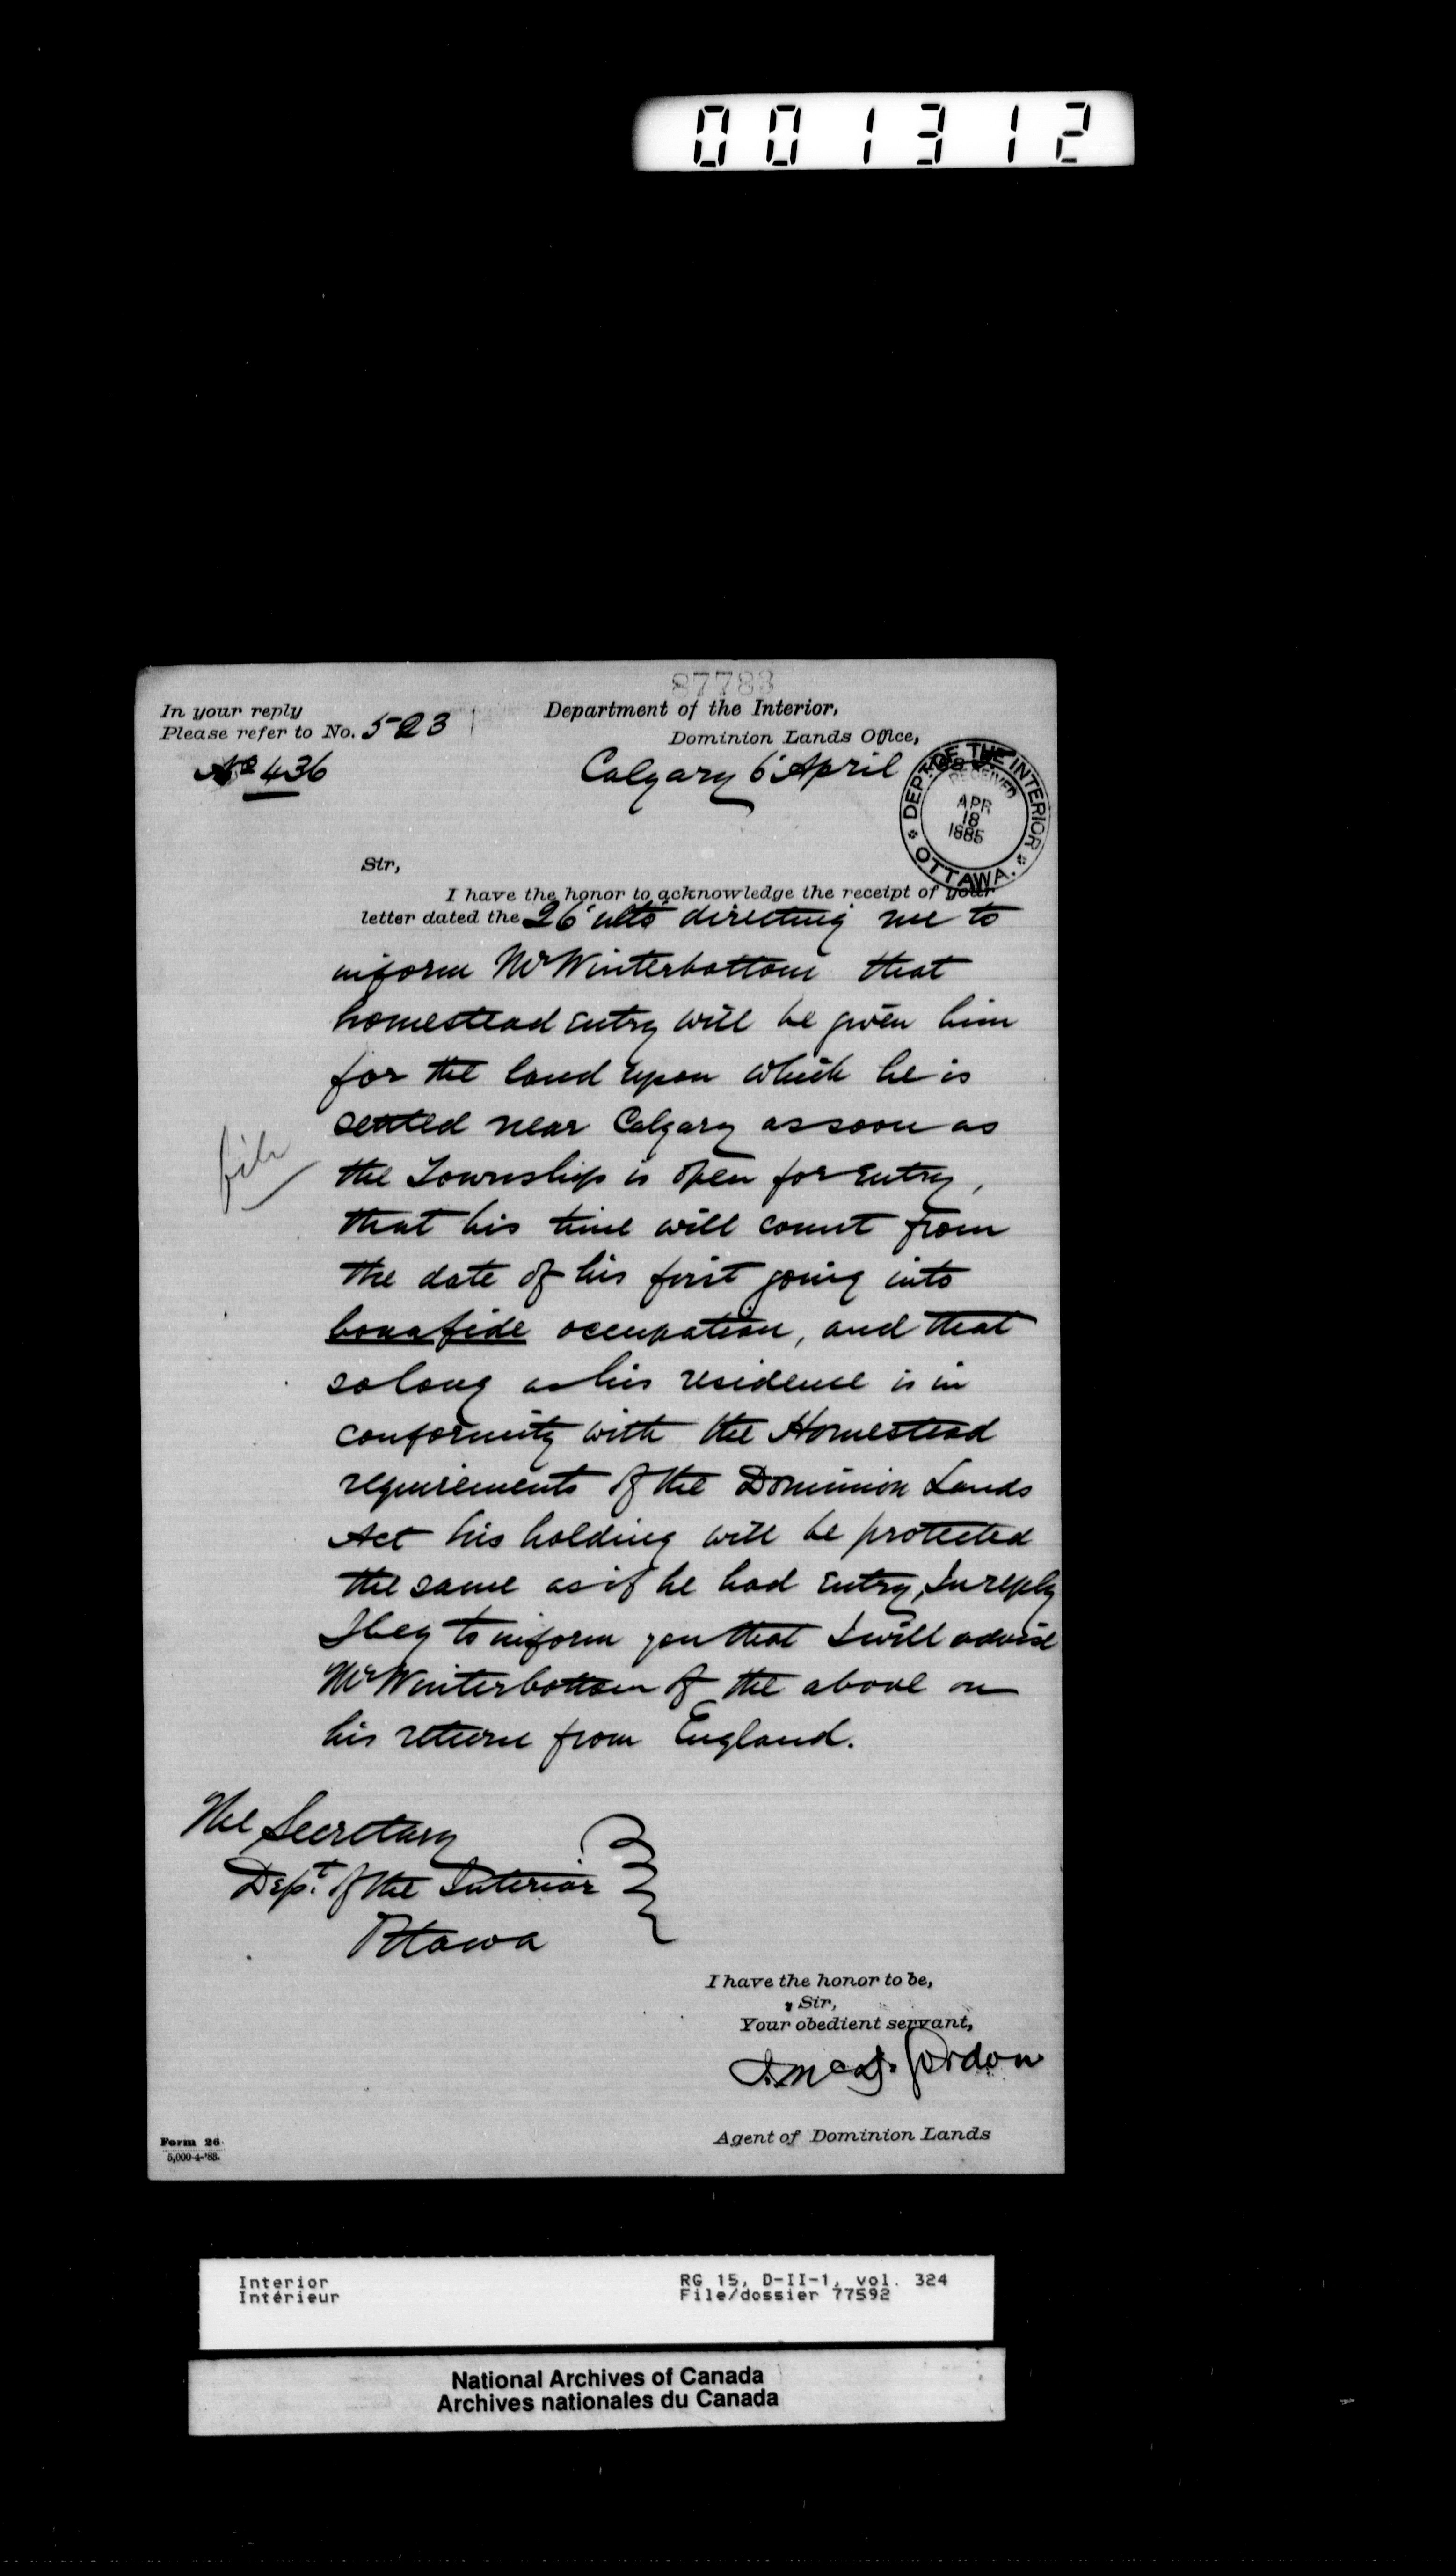 001312
87783
In your reply
Please refer to No. 523
No 436
Department of the Interior,
Dominion Lands Office,
Calgary 6 April
DEPT. OF THE INTERIOR
RECEIVED
APR
18
1885
OTTAWA.
Sir,
I have the honor to acknowledge the receipt of your
letter dated the 26 ulto directing me to
inform Mr Winterbottom that
homestead entry will be given him
for the land upon which he is
settled near Calgary as soon as
file
the Township is open for Entry,
that his time will count from
the date of his first going into
bonafide occupation, and that
so long as his residence is in
conformity with the Homestead
requirements of the Dominion Lands
Act his holding will be protected
the same as if he had Entry, In reply
I beg to inform you that I will advise
Mr Winterbottom of the above on
his return from England.
The Secretary
Dept. of the Interior
Ottawa
I have the honor to be,
Sir,
Your obedient servant,
Gordon
Agent of Dominion Lands
Form 26
5,000-4-'85.
Interior
Intérieur
RG 15, D-II-1, vol. 324
File/dossier 77592
National Archives of Canada
Archives nationales du Canada